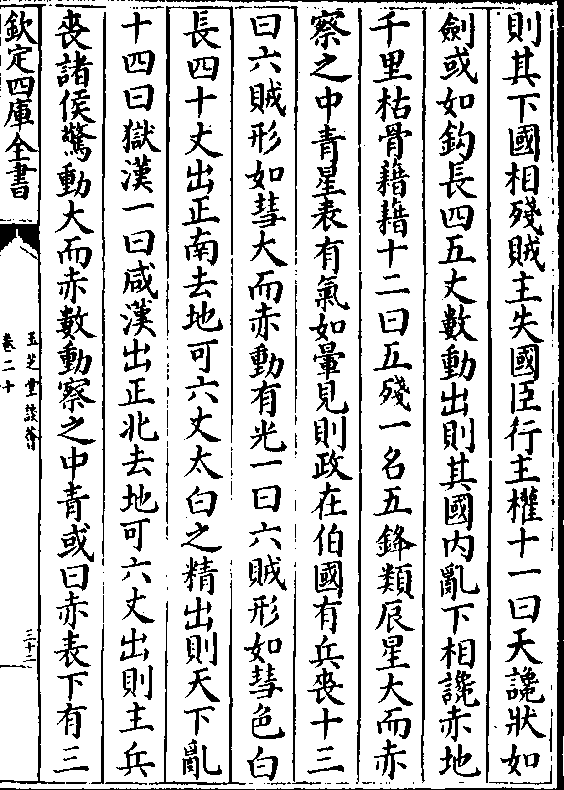 則其下國相殘賊主失國臣行主權十一曰天讒狀如
劍或如鈎長四五丈數動出則其國內亂下相讒赤地
千里枯骨藉藉十二曰五殘一名五鋒類辰星大而赤
察之中青星表有氣如暈見則政在伯國有兵喪十三
曰六賊形如彗大而赤動有光一曰六賊形如彗色白
長四十丈出正南去地可六丈太白之精出則天下亂
十四曰獄漢一曰咸漢出正北去地可六丈出則主兵
喪諸侯驚動大而赤數動察之中青或曰赤表下有三
欽定四庫全書
玉芝堂談薈
卷二十
三十二